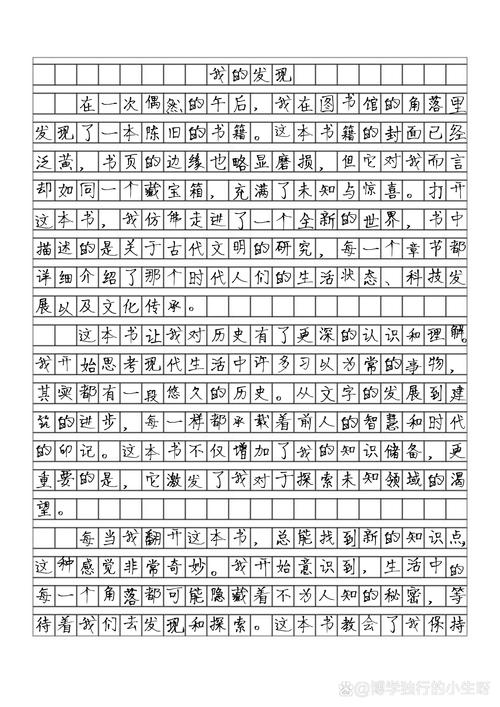 我的发现
在一次偶然的午后，我在图书馆的角落里
发现了一本陈旧的书籍。这本书籍的封面已经
泛黄，书页的边缘也略显磨损，但它对我而言
却如同一个藏宝箱，充满了未知与惊喜。打开
这本书，我仿佛走进了一个全新的世界，书中
描述的是关于古代文明的研究，每一个章节都
详细介绍了那个时代人们的生活状态、科技发
展以及文化传承。
这本书让我对历史有了更深的认识和理解。
我开始思考现代生活中许多习以为常的事物，
其实都有一段悠久的历史。从文字的发展到建
筑的进步，每一样都承载着前人的智慧和时代
的印记。这本书不仅增加了我的知识储备，更
重要的是，它激发了我对于探索未知领域的渴
望。
每当我翻开这本书，总能找到新的知识点，
这种感觉非常奇妙。我开始意识到，生活中的
每一个角落都可能隐藏着不为人知的秘密，等
待着我们去发现和探索。这本书教会了我保持
@博学独行的小生呀